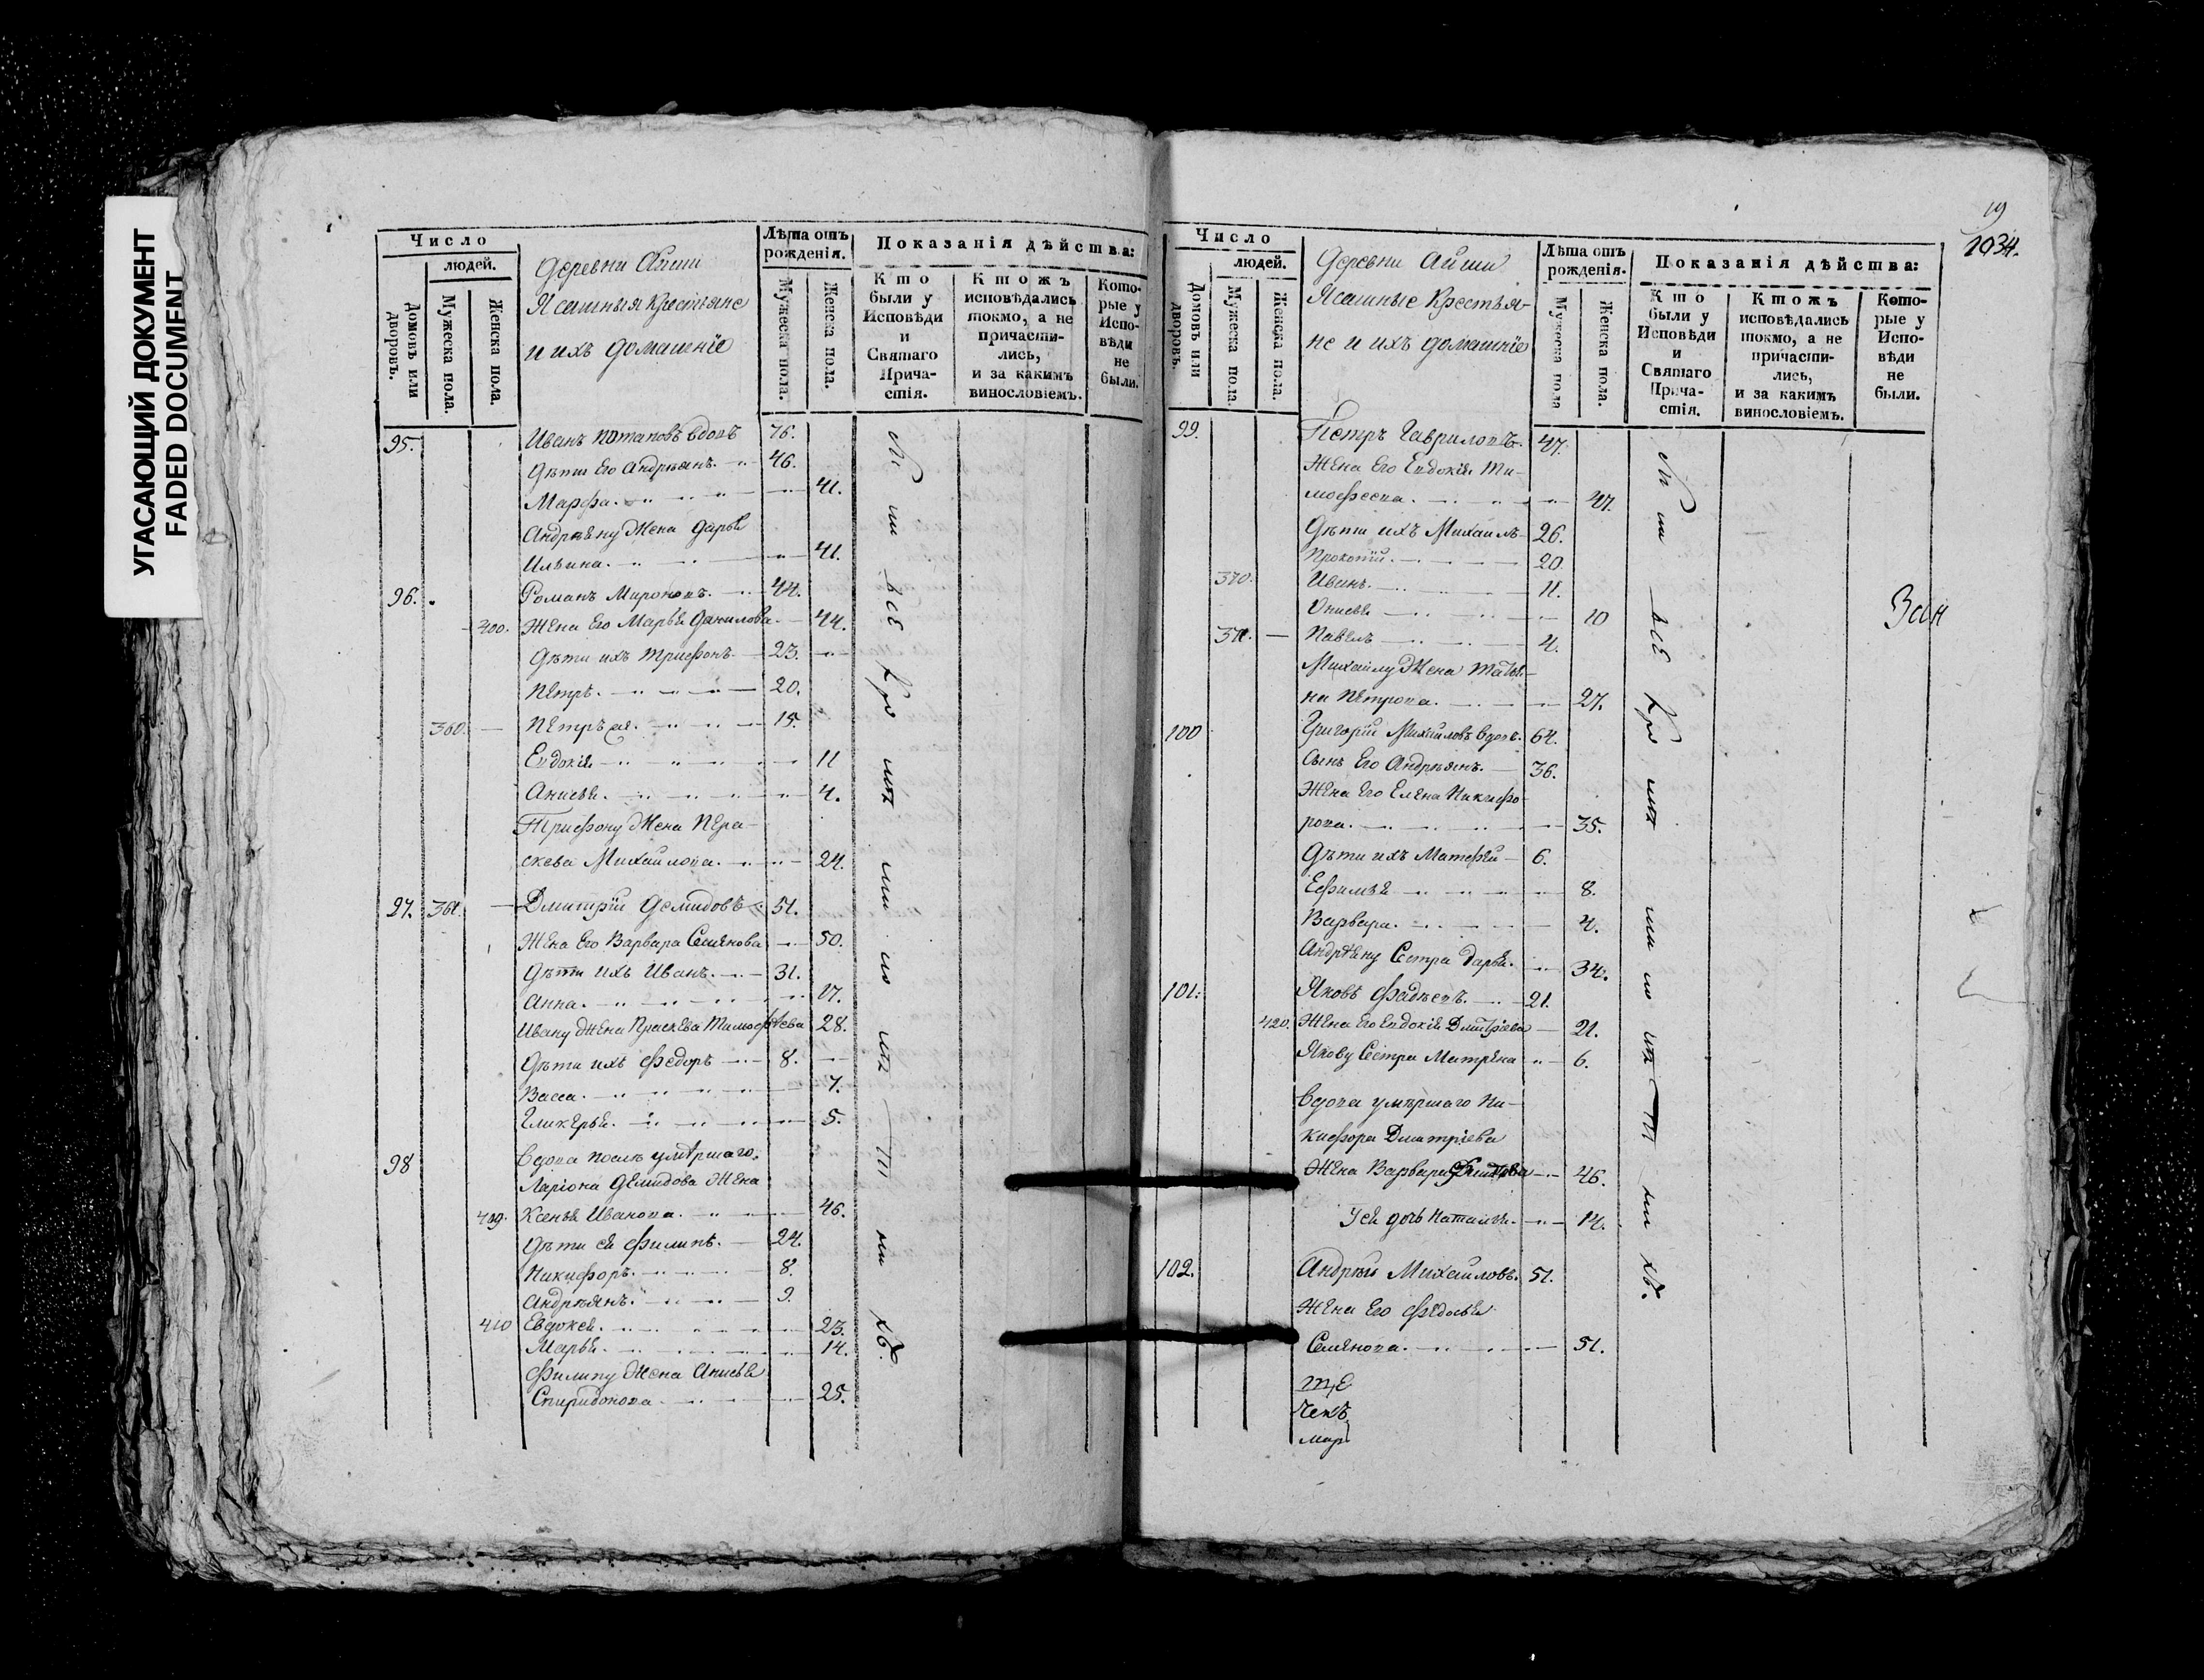 УГАСАЮЩИЙ ДОКУМЕНТ
FADED DOCUMENT
Число
людей.
Домовъ или дворовъ.
Мужеска пола.
Женска пола.
Деревни Айши
Ясашныя Крестьяне
и ихъ домашніе
Лѣта отъ рожденія.
Мужеска пола.
Женска пола.
Показанія дѣйства:
Кто были у Исповѣди и Святаго Причастія.
Ктожъ исповѣдались токмо, а не причастились, и за какимъ винословіемъ.
Которые у Исповѣди не были.
95. Иванъ Потаповъ вдовъ 76.
Дѣти Его Андрѣянъ. 46.
Марфа. 41.
Андрѣяну Жена Дарья
Ильина. 41.
96. Романъ Мироновъ. 44.
400. Жена Его Марья Данилова. 44.
Дѣти ихъ Трифонъ 23.
Петръ. 20.
360. Петръ 15.
Евдокія 11
Анисья. 4.
Трифону Жена Пера-
скева Михайлова. 24.
97. 361. Дмитрій Демидовъ 51.
Жена Его Варвара Семенова 50.
Дѣти ихъ Иванъ. 31.
Анна. 17.
Ивану Жена Праскева Тимофѣева 28.
Дѣти ихъ Федоръ 8.
Васса. 7.
Гликерья. 5.
98 Вдова послѣ умѣршаго
Ларіона Демидова Жена
409. Ксенья Иванова. 46.
Дѣти ея Филипъ. 24.
Никифоръ. 8.
Андрѣянъ. 9.
410 Евдокея. 23.
Марья. 14.
Филипу Жена Анисья
Спиридонова 25.
19
1034.
Число
людей.
Домовъ или дворовъ.
Мужеска пола
Женска пола.
Деревни Айши
Ясашные Крестья-
не и ихъ домашніе
Лѣта отъ рожденія.
Мужеска пола
Женска пола.
Показанія дѣйства:
Кто были у Исповѣди и Святаго Причастія.
Ктожъ исповѣдались токмо, а не причастились, и за какимъ винословіемъ.
Которые у Исповѣди не были.
99. Петръ Гавриловъ. 47.
Жена Его Евдокія Ти-
мофеева. 47.
Дѣти ихъ Михаилъ 26.
Прокопій. 20.
370. Иванъ. 11.
Анисья 10
371. Павелъ 4.
Михайлу Жена Татья-
на Петрова. 27.
100 Григорій Михайловъ вдовъ. 64.
Сынъ Его Андрѣянъ. 36.
Жена Его Елена Никифо-
рова. 35.
Дѣти ихъ Матфей 6.
Ефимья 8.
Варвара. 4.
Андрѣяну Сестра Дарья. 34.
101. Яковъ Фадѣевъ. 21.
420. Жена Его Евдокія Дмитріева 21.
Якову Сестра Матрена 6.
Вдова умершаго Ни-
кифора Дмитріева
Жена Варвара 46.
У ея дочь Наталья. 14.
102. Андрей Михайловъ. 51.
Жена Его Федосья
Семенова. 51.